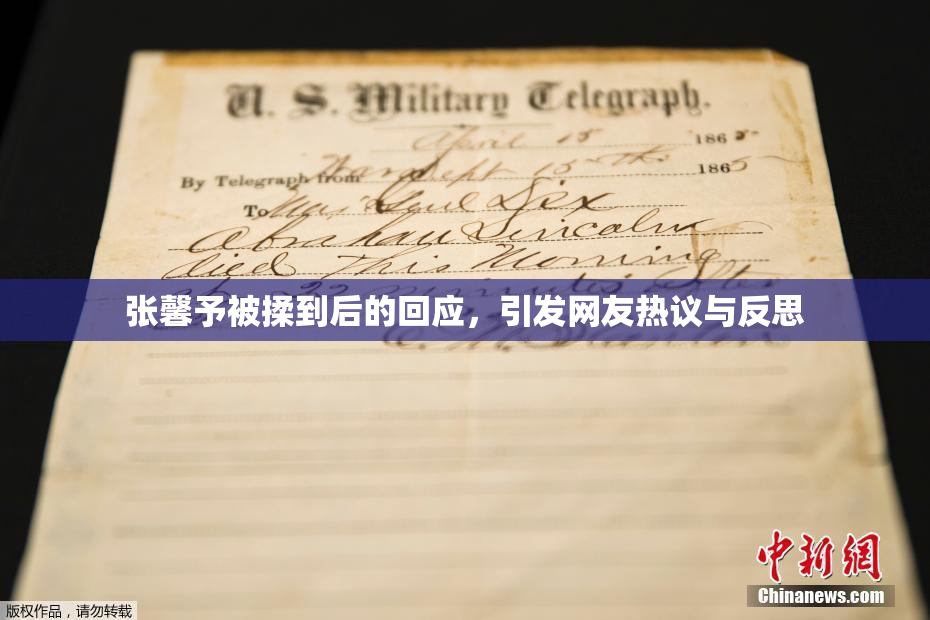 U. S. Military Telegraph.
April 15 1865
By Telegraph from War Dept 15th 1865
To Maj Genl Dix
Abraham Lincoln
died This Morning
22 minutes after
张馨予被揉到后的回应，引发网友热议与反思
中新網
Chinanews.com
版权作品，请勿转载